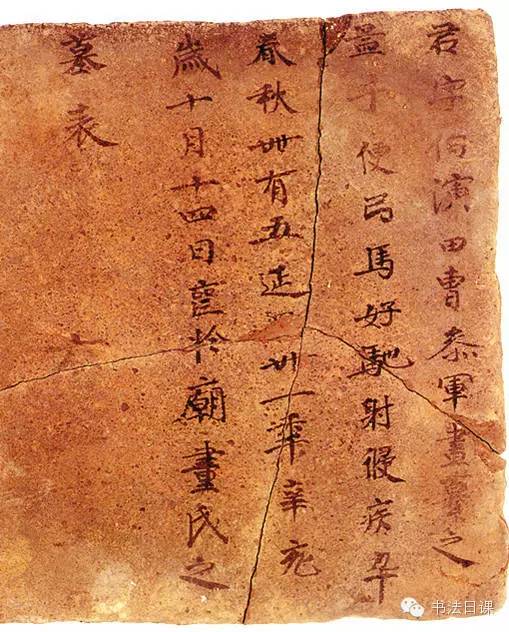 君字伯演田曹叅軍畫之
孟子便弓馬好馳射疾卒
春秋卅有五延卅一年辛亥
歲十月十四日喪於廟畫氏之
墓表
书法日课